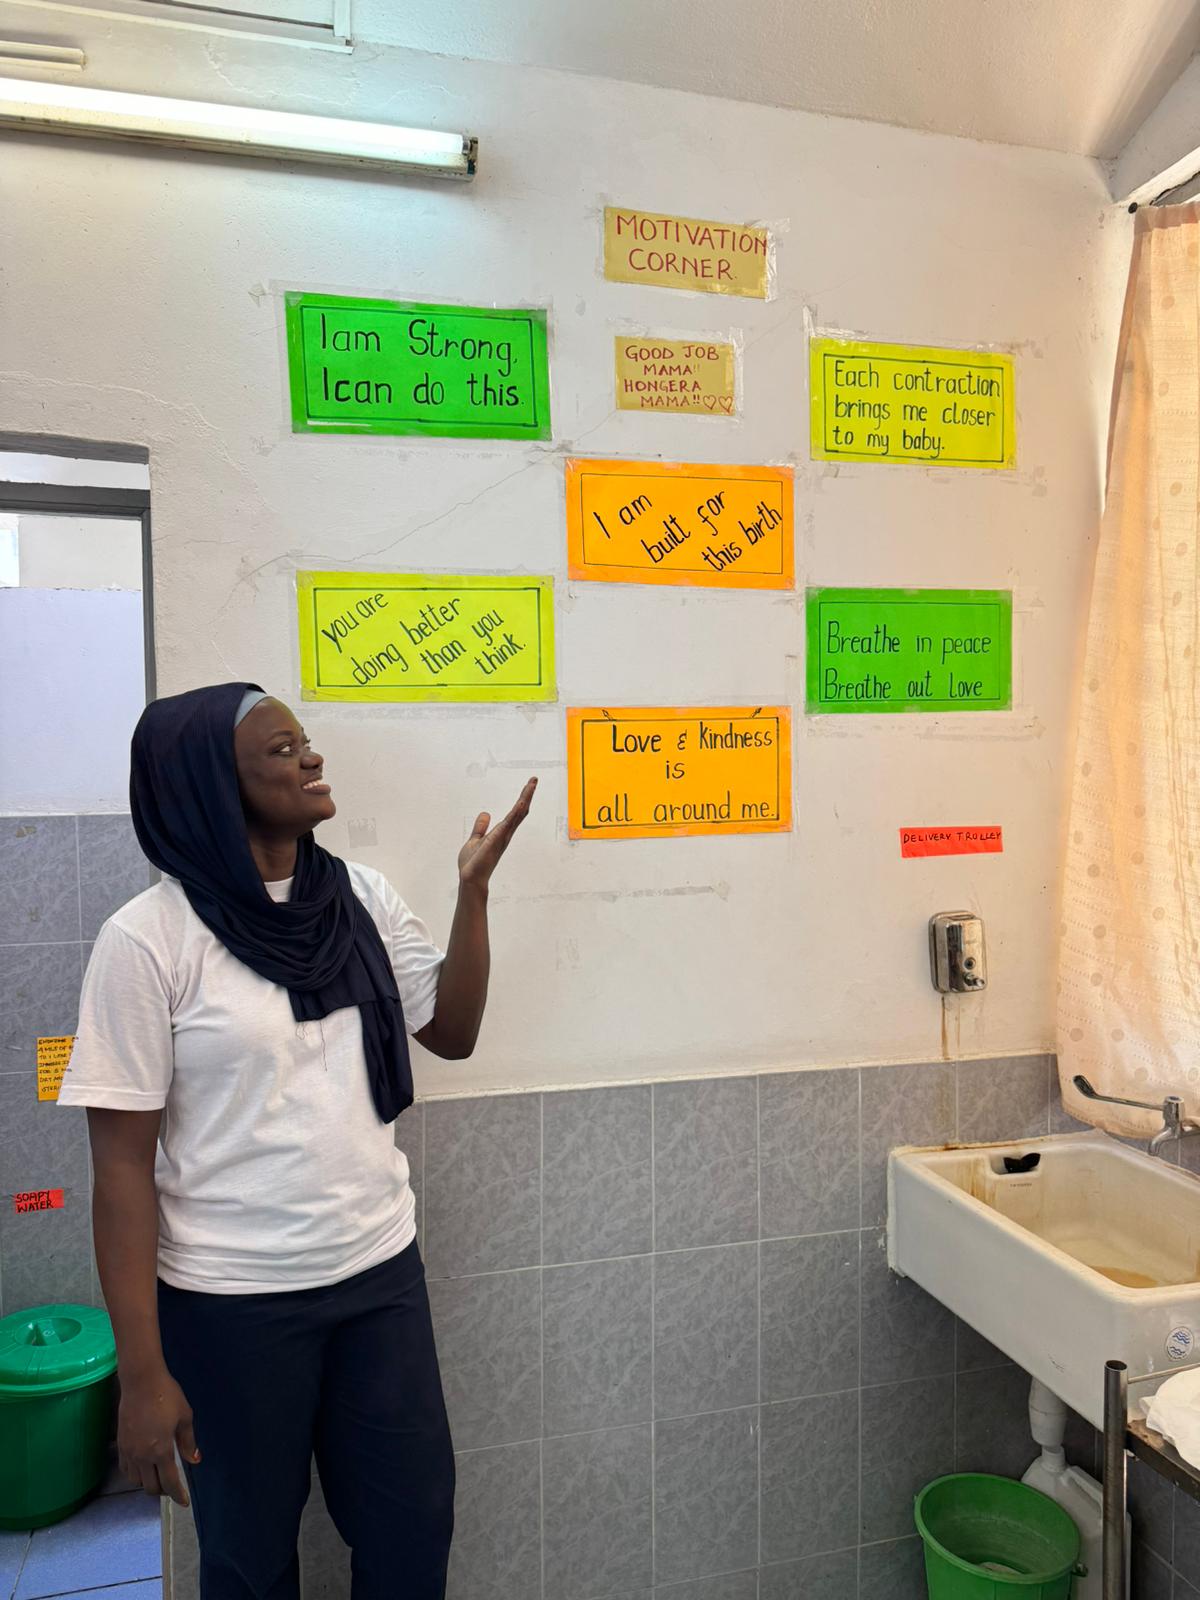 MOTIVATION
CORNER.
Iam Strong,
Ican do this.
GOOD JOB
MAMA!!
HONGERA
MAMA!!♡♡
Each contraction
brings me closer
to my baby.
I am
built for
this birth
you are
doing better
than you
think.
Breathe in peace
Breathe out Love
Love & kindness
is
all around me.
DELIVERY TROLLEY
SOAPY
WATER